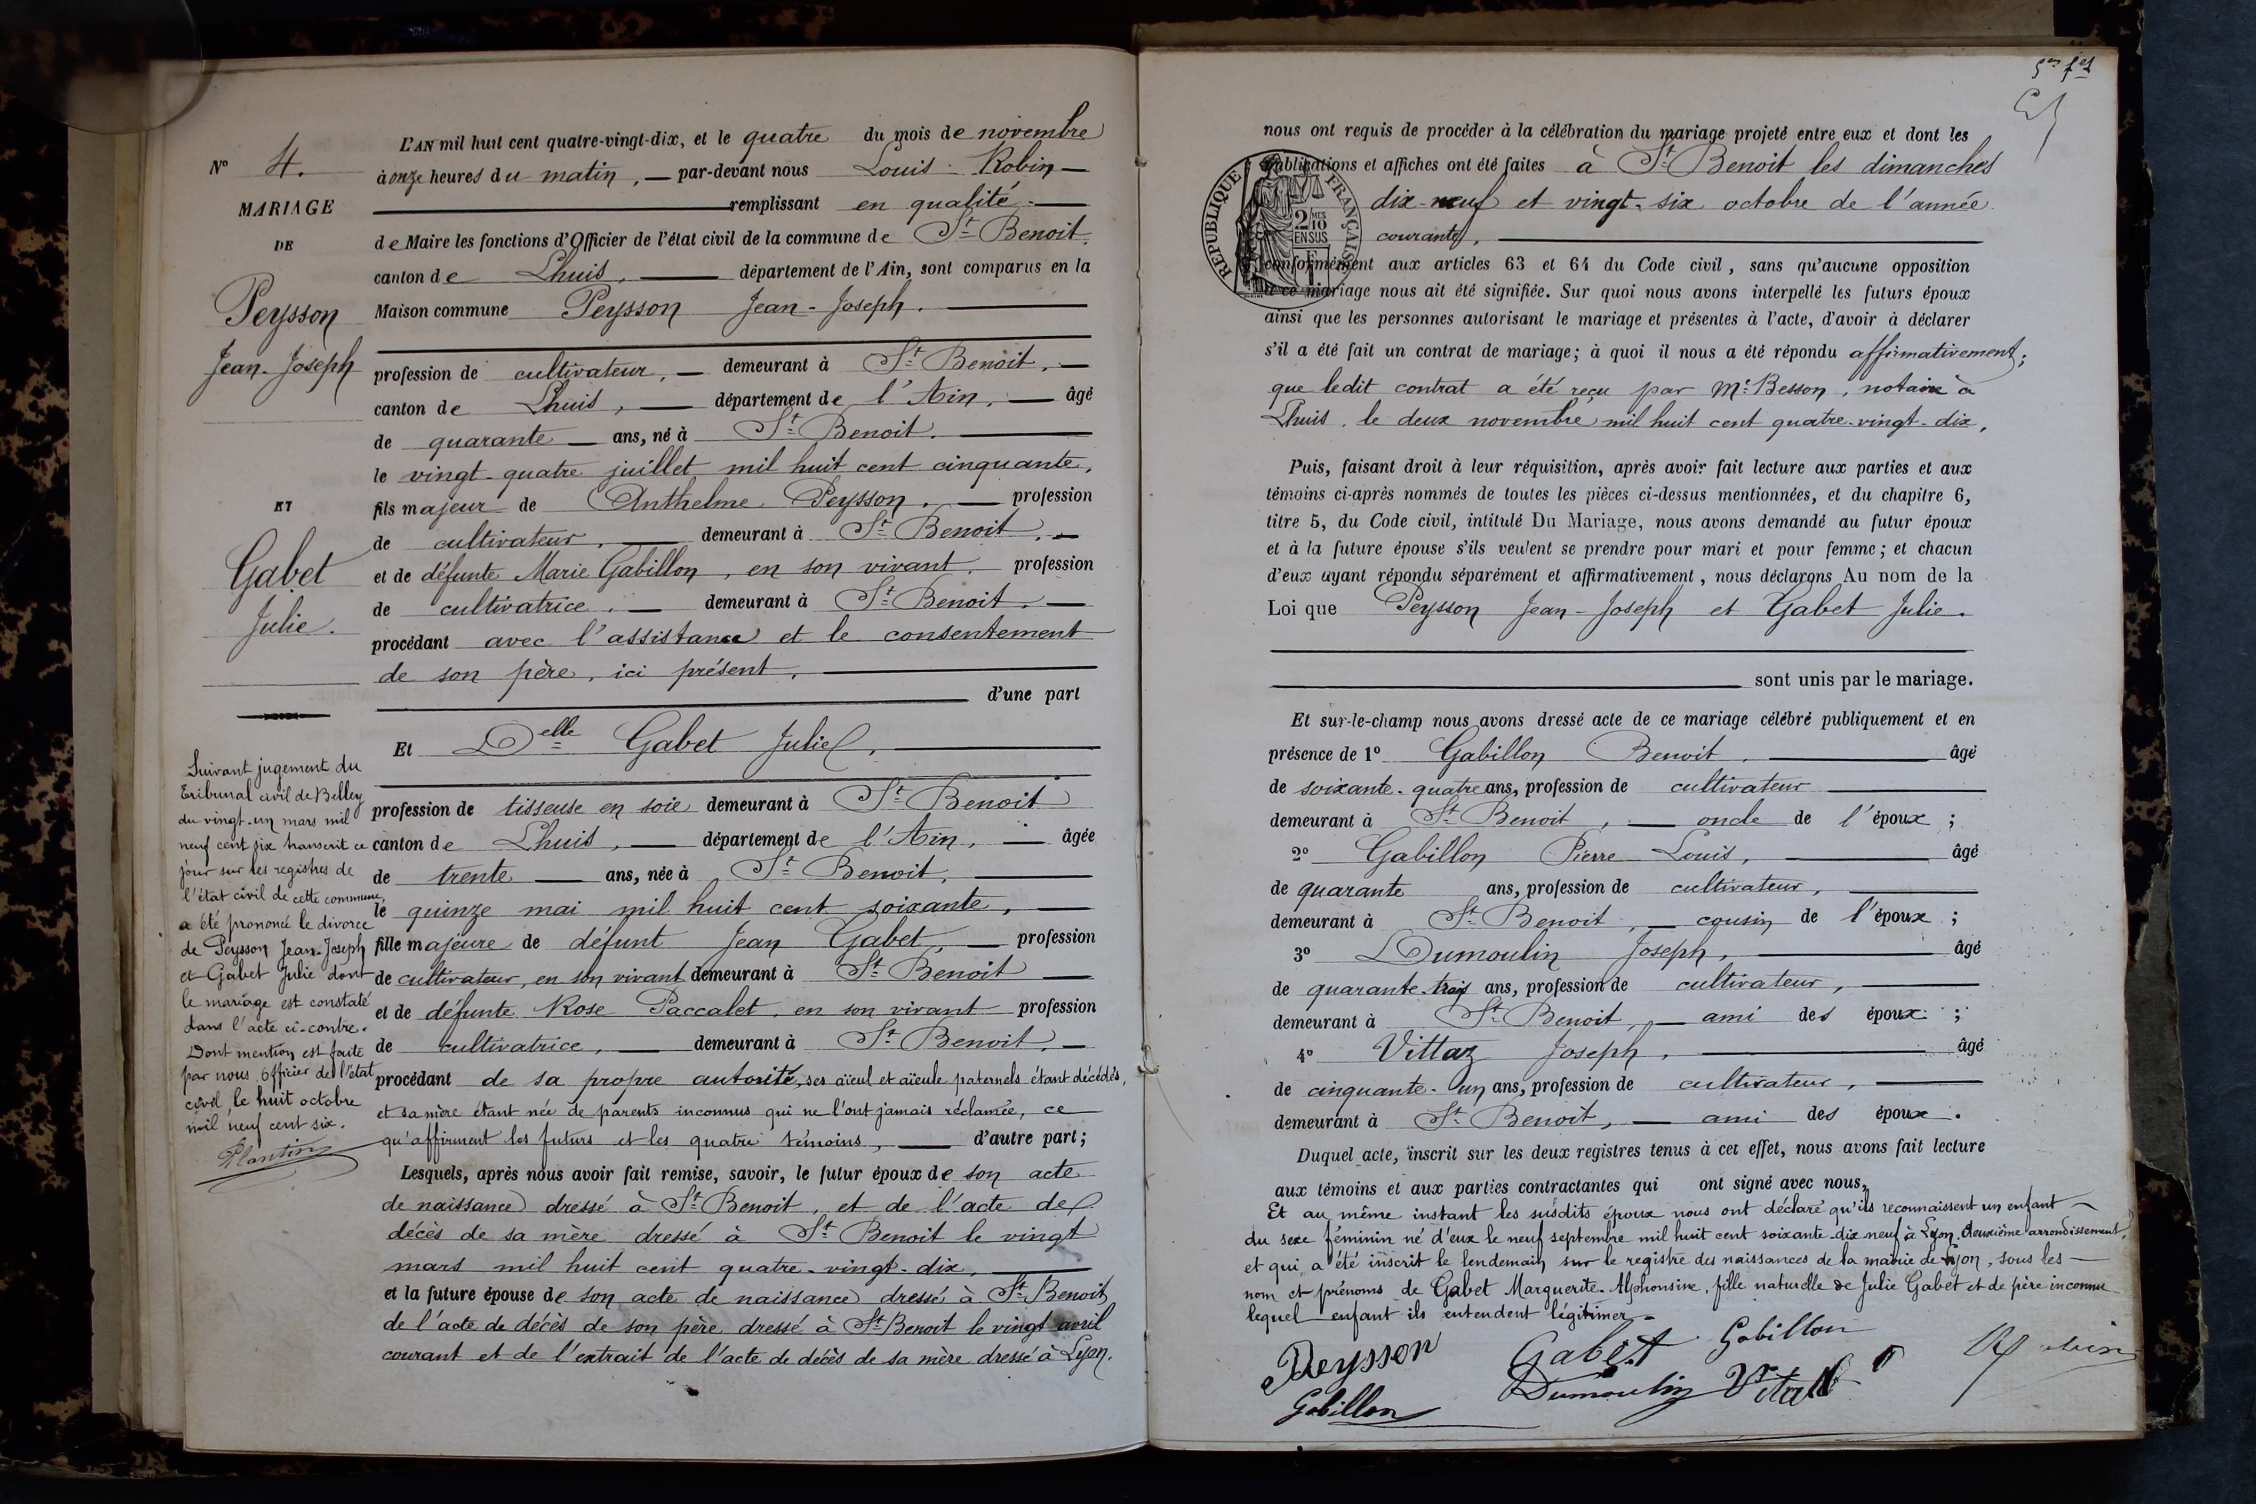 N° 4.
MARIAGE
DE
Peysson
Jean-Joseph
ET
Gabet
Julie.
Suivant jugement du
Tribunal civil de Belley
du vingt-un mars mil
neuf cent six transcrit ce
jour sur les registres de
l'état civil de cette commune,
a été prononcé le divorce
de Peysson Jean-Joseph
et Gabet Julie dont
le mariage est constaté
dans l'acte ci-contre.
Dont mention est faite
par nous officier de l'état
civil le huit octobre
mil neuf cent six.
Plantin
L'AN mil huit cent quatre-vingt-dix, et le quatre du mois de novembre
à onze heures du matin, — par-devant nous Louis Robin —
remplissant en qualité —
de Maire les fonctions d'Officier de l'état civil de la commune de St Benoit.
canton de Lhuis, — département de l'Ain, sont comparus en la
Maison commune Peysson Jean-Joseph. —
profession de cultivateur, — demeurant à St Benoit, —
canton de Lhuis, — département de l'Ain, — âgé
de quarante — ans, né à St Benoit. —
le vingt-quatre juillet mil huit cent cinquante,
fils majeur de Anthelme Peysson, — profession
de cultivateur, — demeurant à St Benoit, —
et de défunte Marie Gabillon, en son vivant. profession
de cultivatrice. — demeurant à St Benoit. —
procédant avec l'assistance et le consentement
de son père, ici présent, —
d'une part
Et Delle Gabet Julie, —
profession de tisseuse en soie demeurant à St Benoit
canton de Lhuis, — département de l'Ain, — âgée
de trente — ans, née à St Benoit, —
le quinze mai mil huit cent soixante, —
fille majeure de défunt Jean Gabet, — profession
de cultivateur, en son vivant demeurant à St Benoit —
et de défunte Rose Paccalet, en son vivant profession
de cultivatrice, — demeurant à St Benoit. —
procédant de sa propre autorité, ses aïeul et aïeule paternels étant décédés,
et sa mère étant née de parents inconnus qui ne l'ont jamais réclamée, ce
qu'affirment les futurs et les quatre témoins, — d'autre part;
Lesquels, après nous avoir fait remise, savoir, le futur époux de son acte
de naissance dressé à St Benoit, et de l'acte de
décès de sa mère dressé à St Benoit le vingt
mars mil huit cent quatre-vingt-dix, —
et la future épouse de son acte de naissance dressé à St Benoit,
de l'acte de décès de son père dressé à St Benoit le vingt avril
courant et de l'extrait de l'acte de décès de sa mère dressé à Lyon.
nous ont requis de procéder à la célébration du mariage projeté entre eux et dont les
publications et affiches ont été faites à St Benoit les dimanches
dix-neuf et vingt-six octobre de l'année
courante, —
RÉPUBLIQUE FRANÇAISE
2/10 EN SUS
conformément aux articles 63 et 64 du Code civil, sans qu'aucune opposition
à ce mariage nous ait été signifiée. Sur quoi nous avons interpellé les futurs époux
ainsi que les personnes autorisant le mariage et présentes à l'acte, d'avoir à déclarer
s'il a été fait un contrat de mariage; à quoi il nous a été répondu affirmativement;
que ledit contrat a été reçu par Me Besson, notaire à
Lhuis, le deux novembre mil huit cent quatre-vingt-dix,
Puis, faisant droit à leur réquisition, après avoir fait lecture aux parties et aux
témoins ci-après nommés de toutes les pièces ci-dessus mentionnées, et du chapitre 6,
titre 5, du Code civil, intitulé Du Mariage, nous avons demandé au futur époux
et à la future épouse s'ils veulent se prendre pour mari et pour femme; et chacun
d'eux ayant répondu séparément et affirmativement, nous déclarons Au nom de la
Loi que Peysson Jean-Joseph et Gabet Julie.
sont unis par le mariage.
Et sur-le-champ nous avons dressé acte de ce mariage célébré publiquement et en
présence de 1° Gabillon Benoit, — âgé
de soixante-quatre ans, profession de cultivateur —
demeurant à St Benoit, — oncle de l'époux;
2° Gabillon Pierre Louis, — âgé
de quarante ans, profession de cultivateur, —
demeurant à St Benoit, — cousin de l'époux;
3° Dumoulin Joseph, — âgé
de quarante-trois ans, profession de cultivateur, —
demeurant à St Benoit, — ami des époux;
4° Vittaz Joseph, — âgé
de cinquante-un ans, profession de cultivateur, —
demeurant à St Benoit, — ami des époux.
Duquel acte, inscrit sur les deux registres tenus à cet effet, nous avons fait lecture
aux témoins et aux parties contractantes qui ont signé avec nous,
Et au même instant les susdits époux nous ont déclaré qu'ils reconnaissent un enfant —
du sexe féminin né d'eux le neuf septembre mil huit cent soixante-dix neuf à Lyon, deuxième arrondissement,
et qui a été inscrit le lendemain sur le registre des naissances de la mairie de Lyon, sous les —
nom et prénoms de Gabet Marguerite-Alphonsine, fille naturelle de Julie Gabet et de père inconnu
lequel enfant ils entendent légitimer. —
Peysson Gabet Gabillon Robin
Gabillon Dumoulin